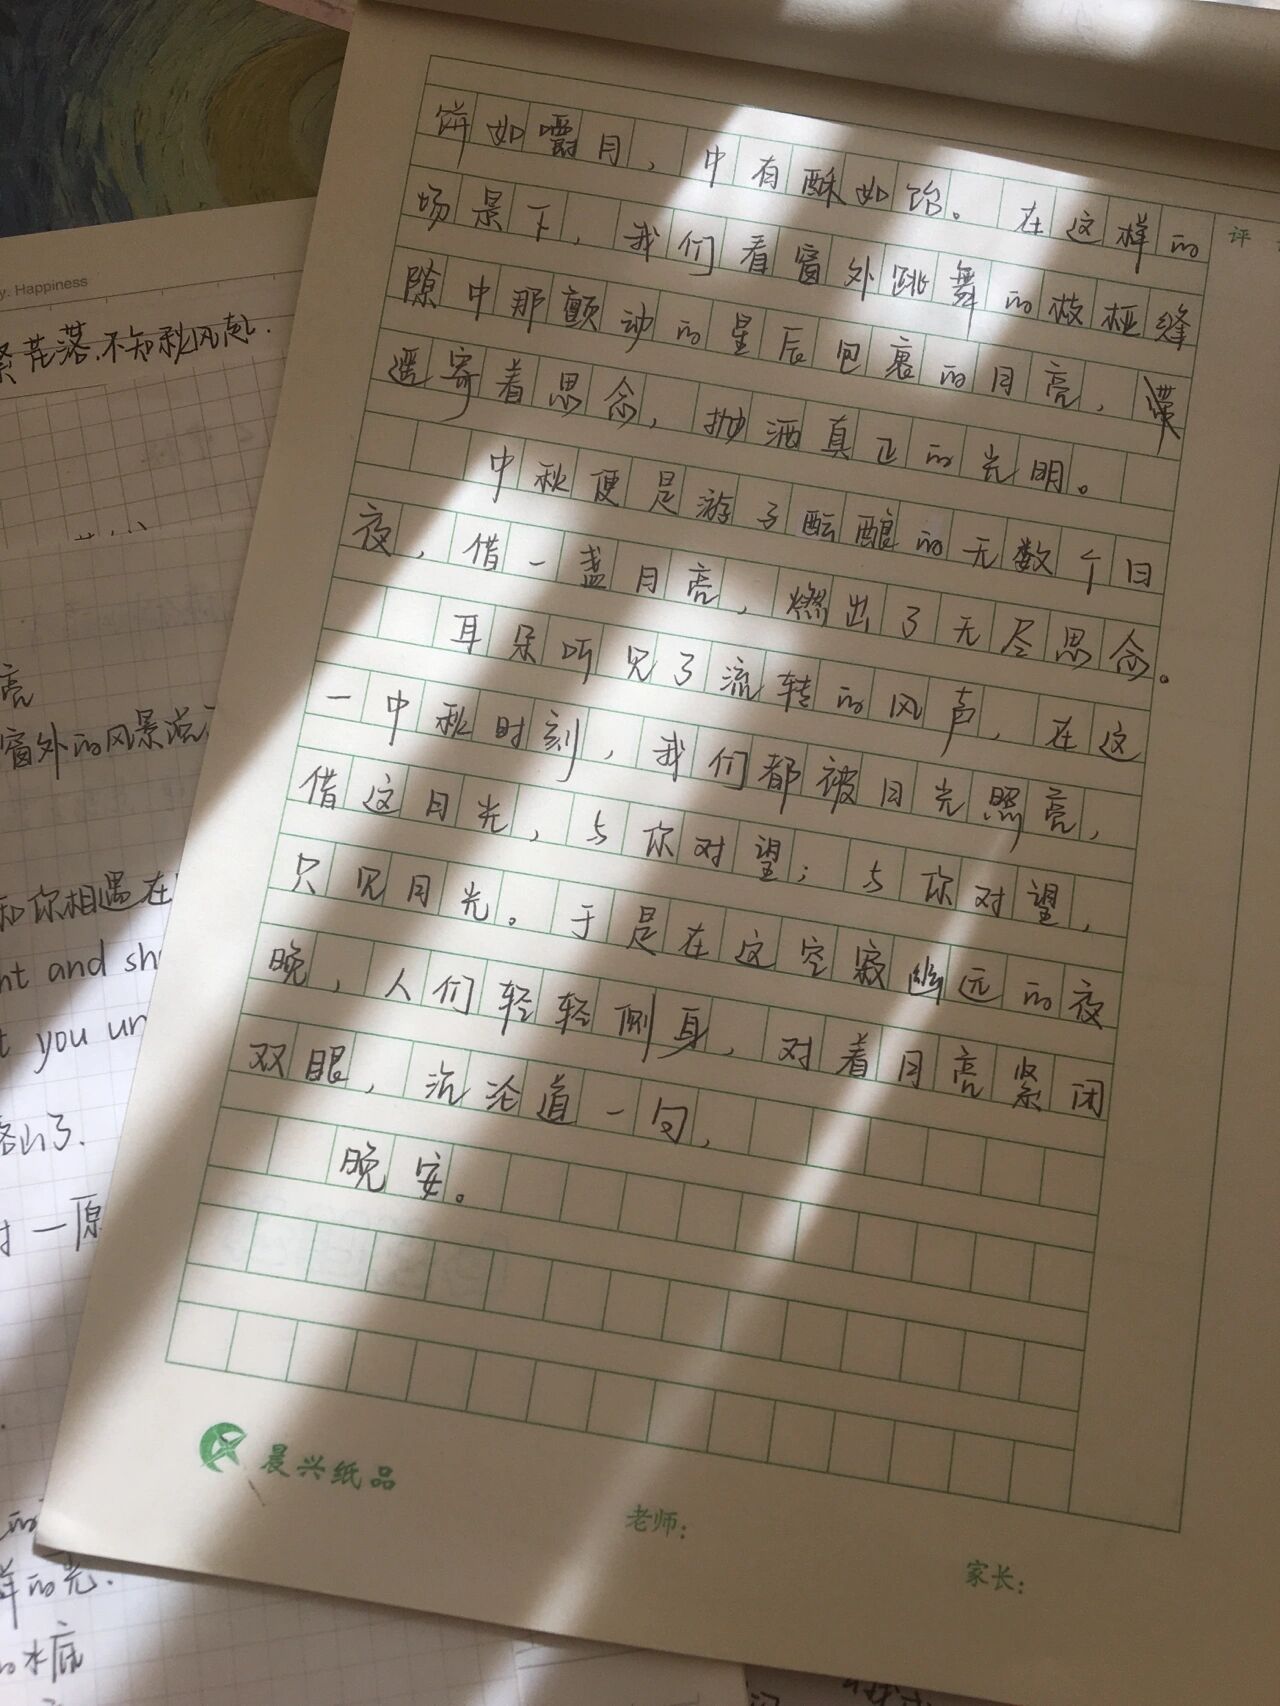 饼如嚼月，中有酥如饴。在这样的
场景下，我们看窗外跳舞的枝桠缝
隙中那颤动的星辰包裹的月亮，
遥寄着思念，抛洒真正的光明。
中秋便是游子酝酿的无数个日
夜，借一盏月亮，燃出了无尽思念。
耳朵听见了流转的风声，在这
一中秋时刻，我们都被月光照亮，
借这月光，与你对望；与你对望，
只见月光。于是在这空寂幽远的夜
晚，人们轻轻侧身，对着月亮紧闭
双眼，沉沦道一句，
晚安。
晨兴纸品
老师：
家长：
评
y. Happiness
花落，不知秋风起.
亮
窗外的风景
和你相遇在
nt and sh
t you un
山了.
一原
的
样的光.
水底